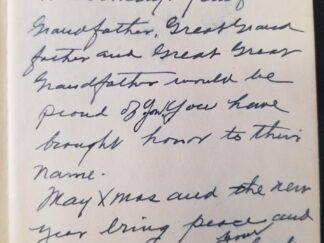 Grandfather, Great Grand
father and Great Great
Grandfather would be
proud of you. You have
brought honor to their
name.
May Xmas and the new
year bring peace and